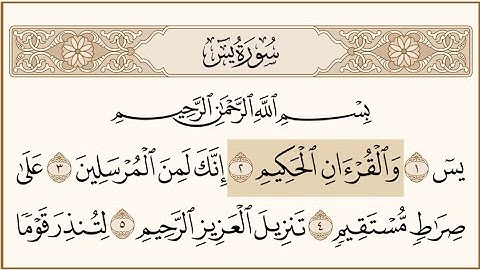 سُورَةُ يسٓ
بِسْمِ اللَّهِ الرَّحْمَٰنِ الرَّحِيمِ
يسٓ ١ وَالْقُرْءَانِ الْحَكِيمِ ٢ إِنَّكَ لَمِنَ الْمُرْسَلِينَ ٣ عَلَىٰ
صِرَاطٍ مُّسْتَقِيمٍ ٤ تَنزِيلَ الْعَزِيزِ الرَّحِيمِ ٥ لِتُنذِرَ قَوْمًا